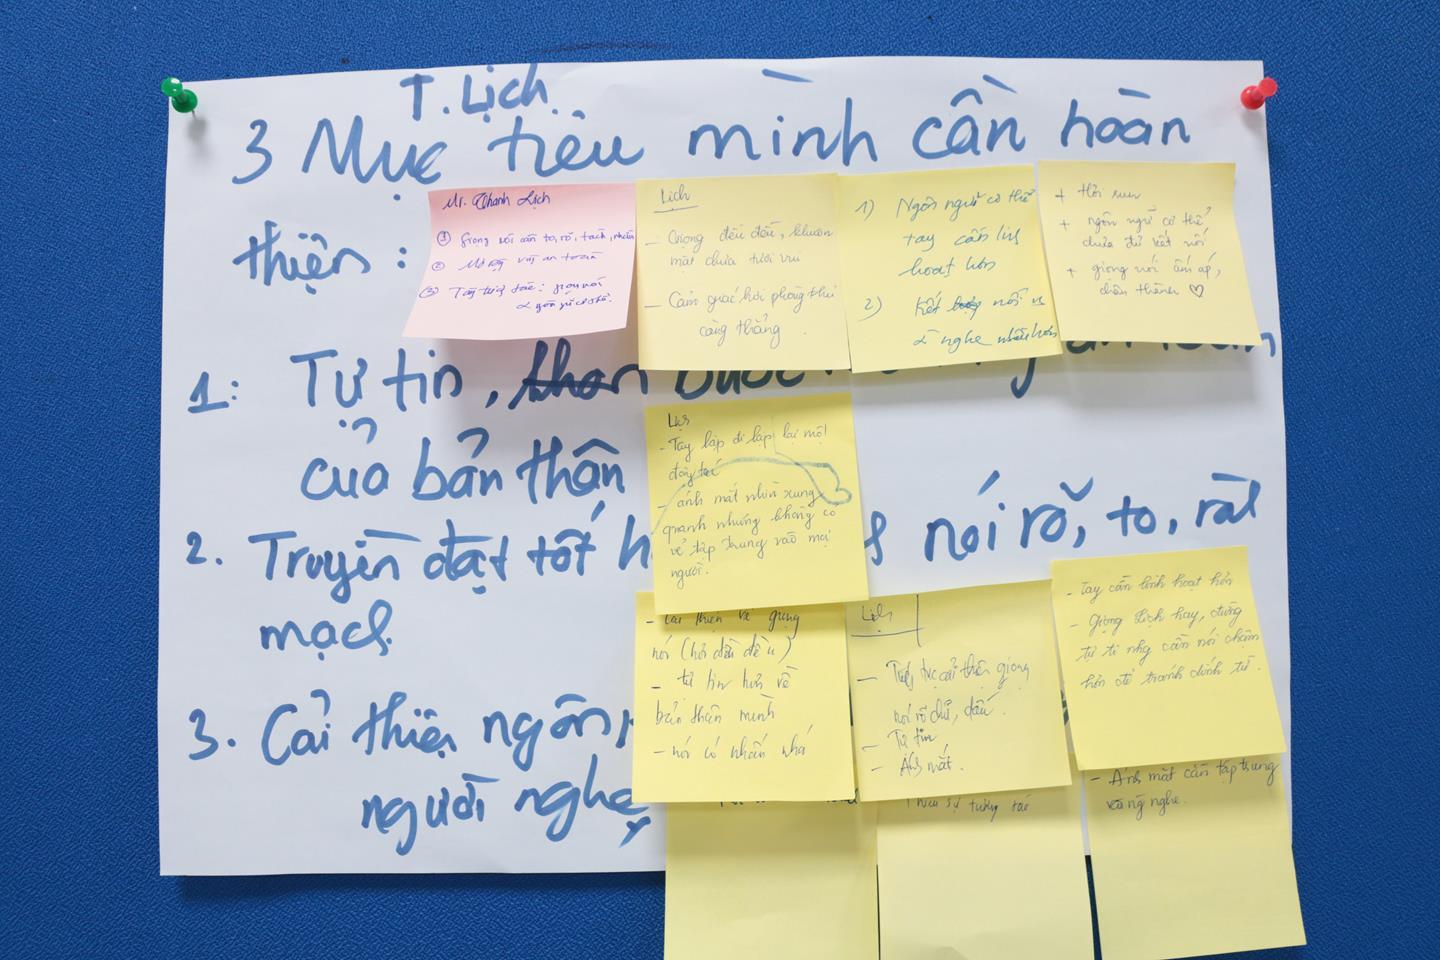 T. Lịch
3 Mục tiêu mình cần hoàn
thiện :
Mr. Thanh Lịch
① giọng nói cần to, rõ, tách, nhấn
②
③ Tay tương tác: giọng nói
Lịch
- Giọng đều đều, khuôn
mặt chưa tươi vui
- Cảm giác hơi phòng thủ
căng thẳng.
1) Ngôn ngữ cơ thể
tay cần linh
hoạt hơn
2) Kết nối
nghe nhiều hơn
+ Hơi run
+ ngôn ngữ cơ thể
chưa đủ kết nối
+ giọng nói ấm áp,
chân thành ♡
1: Tự tin,
của bản thân
Lịch
- Tay lặp đi lặp lại một
động tác
- ánh mắt nhìn xung
quanh nhưng không có
vẻ tập trung vào mọi
người.
2. Truyền đạt tốt nói rõ, to, rành
mạch.
- Cải thiện về giọng
nói (hơi đều đều)
- tự tin hơn về
bản thân mình
- nói có nhấn nhá
Lịch
- Tiếp tục cải thiện giọng
nói rõ chữ, dấu.
- Tự tin
- Ánh mắt.
- Tay cần linh hoạt hơn
- Giọng Lịch hay, đừng
tự ti nhg cần nói chậm
hơn để tránh dính từ.
3. Cải thiện ngôn
người nghe
Thiếu sự tương tác
- Ánh mắt cần tập trung